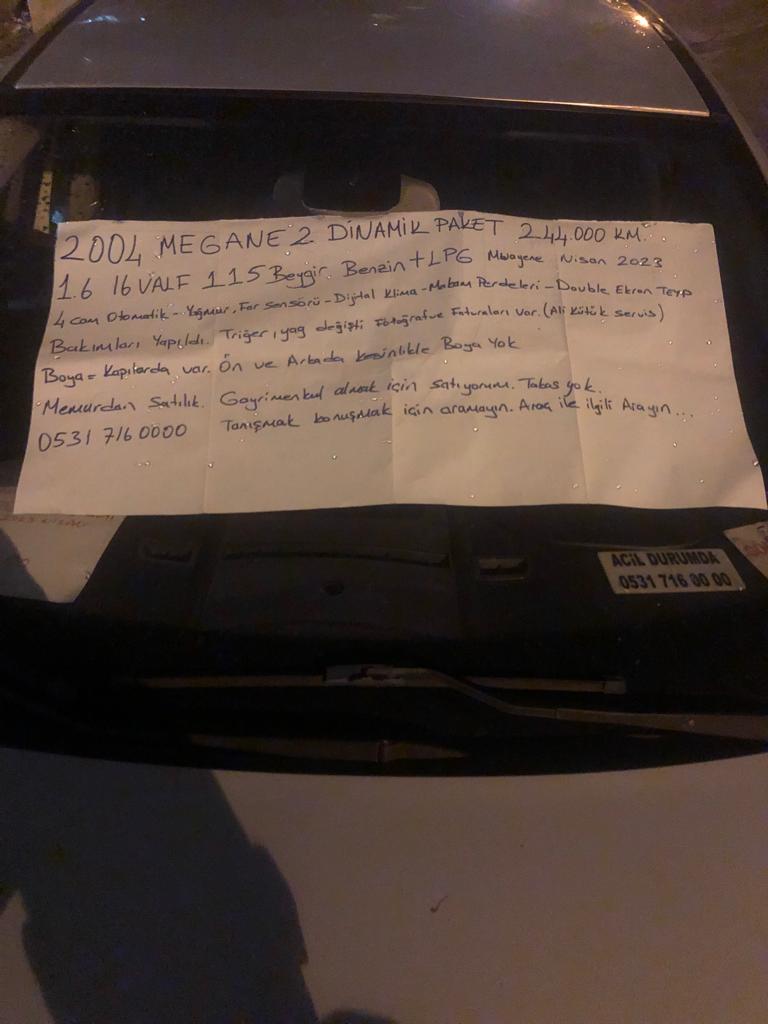 2004 MEGANE 2 DİNAMİK PAKET 244.000 KM.
1.6 16 VALF 115 Beygir. Benzin + LPG Muayene Nisan 2023
4 cam Otomatik - Yağmur, Far Sensörü - Dijital Klima - Makam Perdeleri - Double Ekran Teyp
Bakımları Yapıldı. Triger, yag değişti Fotoğraf ve Faturaları var. (Ali Kütük servis)
Boya = Kapılarda var. Ön ve Arkada kesinlikle Boya Yok
Memurdan Satılık. Gayrimenkul almak için satıyorum. Takas yok.
0531 716 0000 Tanışmak konuşmak için aramayın. Araç ile ilgili Arayın...
ACİL DURUMDA
0531 716 00 00